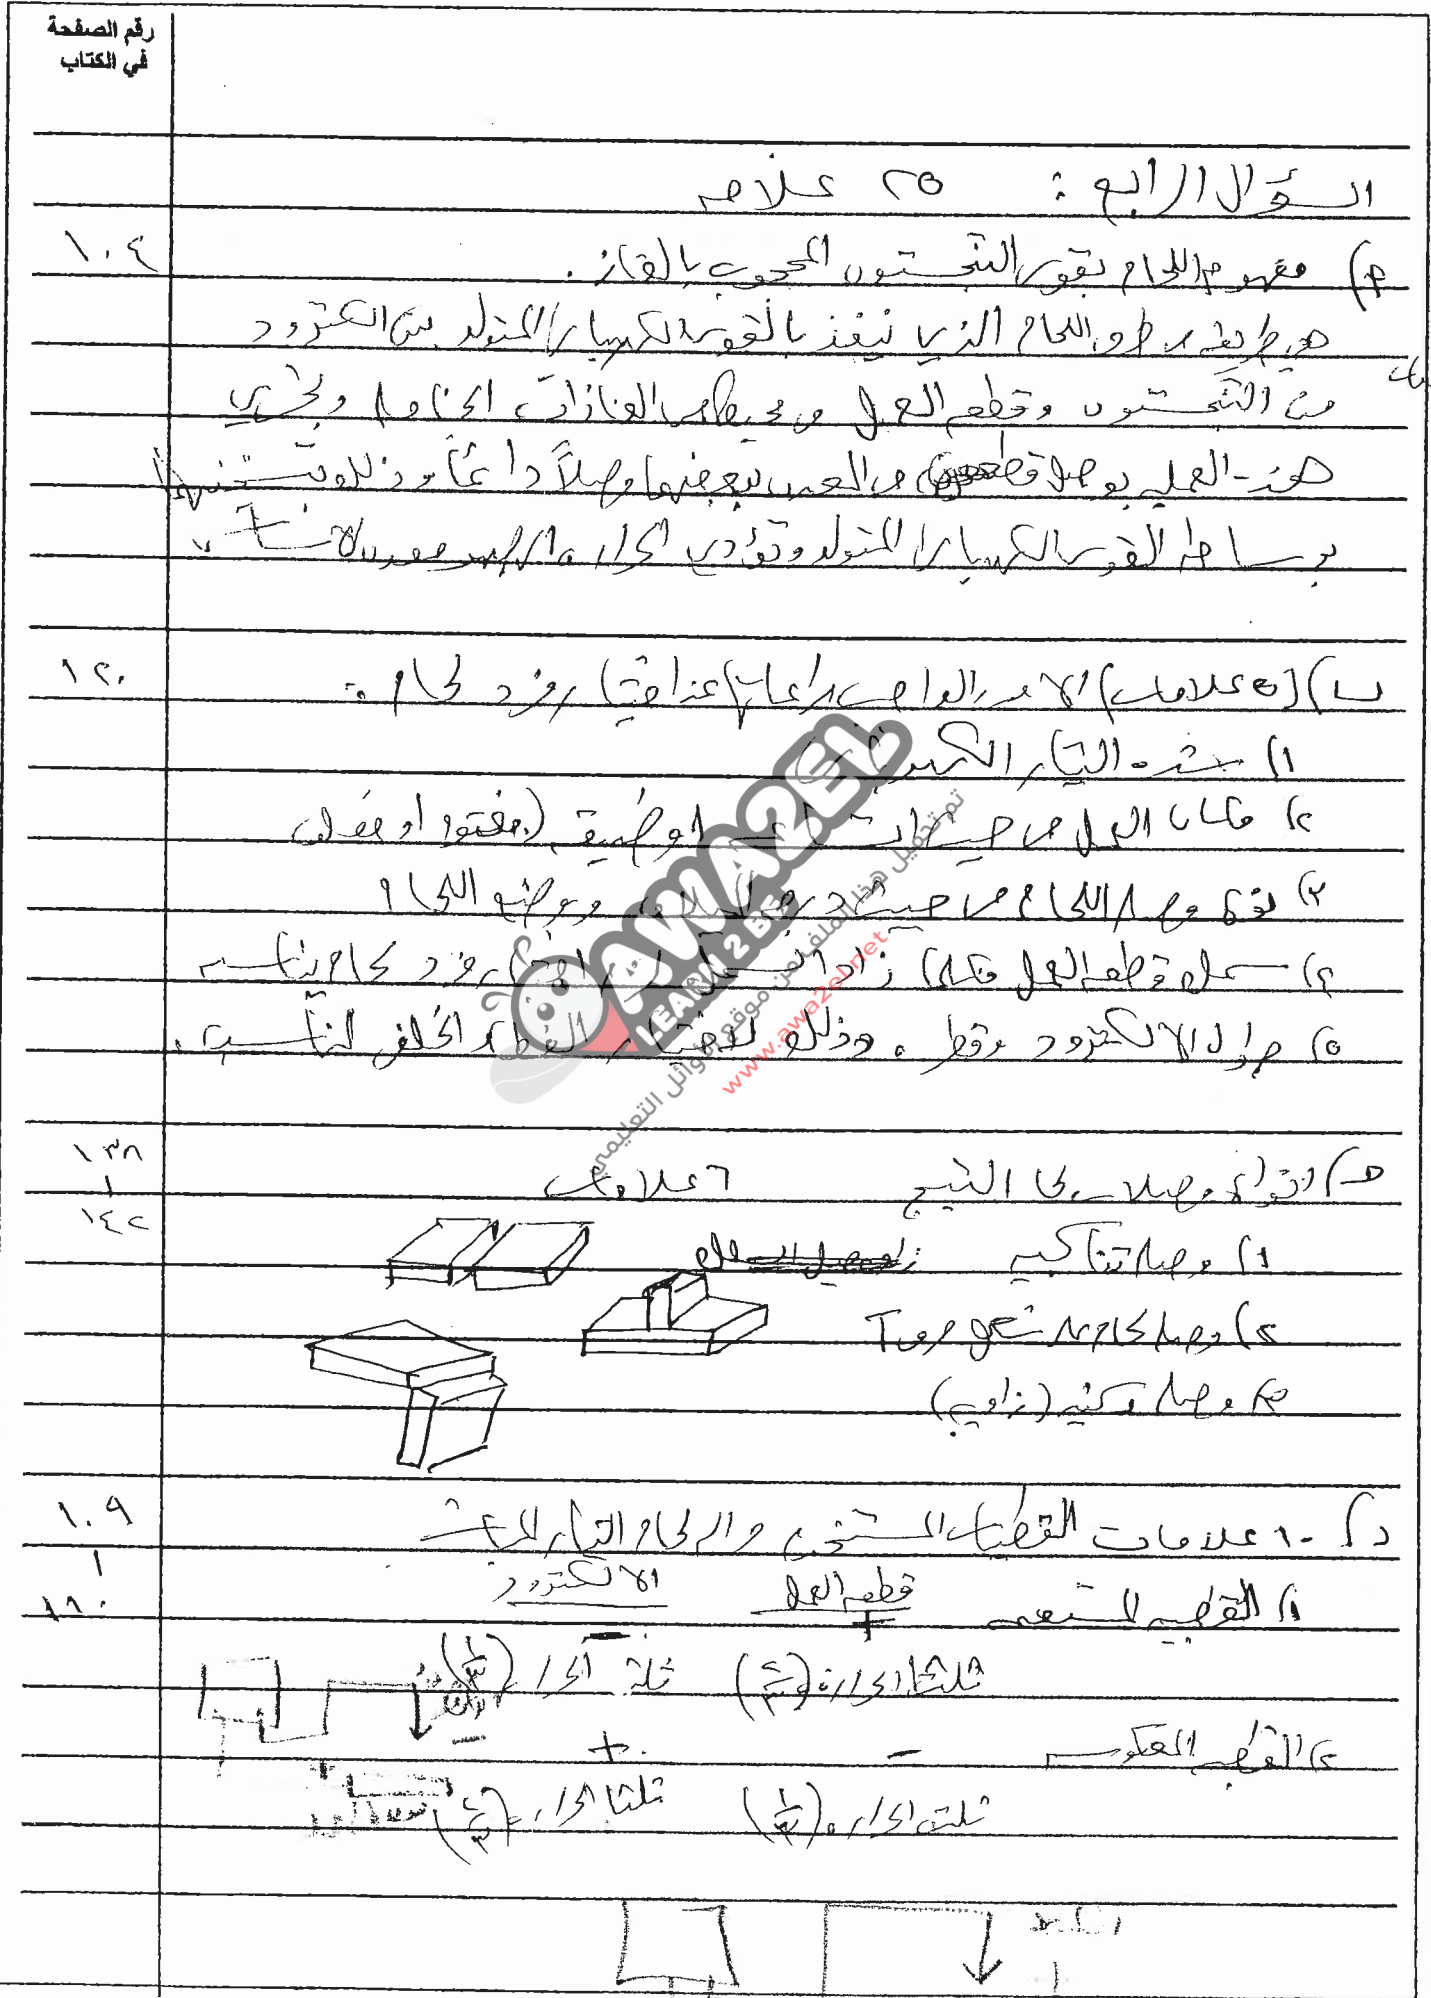 رقم الصفحة
في الكتاب
السؤال الرابع : ٢٥ علامه
١٠٤
أ) مفهوم اللحام بقوس التنجستون المحجوب بالغاز .
هي طريقه من طرق اللحام الذي ينفذ بالقوس الكهربائي المتولد بين الكترود
من التنجستون وقطعه العمل من محيط من الغازات الخامله وتجري
هذه العمليه بوصل قطعتين من المعدن ببعضهما وصلاً دائماً وذلك بتسخينهما
بوساطه القوس الكهربائي المتولد وتؤدي الحراره الى صهر معدن الاساس
١٢٠
ب) (٥ علامات) الامور الواجب مراعاتها عند اختيار رود لحام :
١) شده التيار الكهربائي
٢) مكان العمل من حيث ضيقه (مفتوح او مغلق
٣) نوع وصله اللحام من حيث ووضع اللحام
٤) سمك قطعه العمل فكلما زاد السمك اختيار رود لحام يناسبه
٥) طول الالكترود وقطره وذلك لاختيار الغطاء الخلفي المناسب .
١٣٨
١
١٤٢
ج) انواع وصلات لحام التيج ٦ علامات
١) وصله تناكبيه
٢) وصله لحام على شكل حرف T
٣) وصله ركنيه (زاويه)
١٠٩
١
١١٠
د) ١٠ علامات القطبيات المستخدمه في لحام التيار المباشر
قطعه العمل الالكترود
١) القطبيه المستقيمه + -
ثلثا الحراره (٢/٣) ثلث الحراره (١/٣)
٢) القطبيه المعكوسه - +
ثلث الحراره (١/٣) ثلثا الحراره (٢/٣)
AWA2EL
LEARN 2 BE
تم تحميل هذا الملف من موقع الأوائل التعليمي
www.awa2el.net